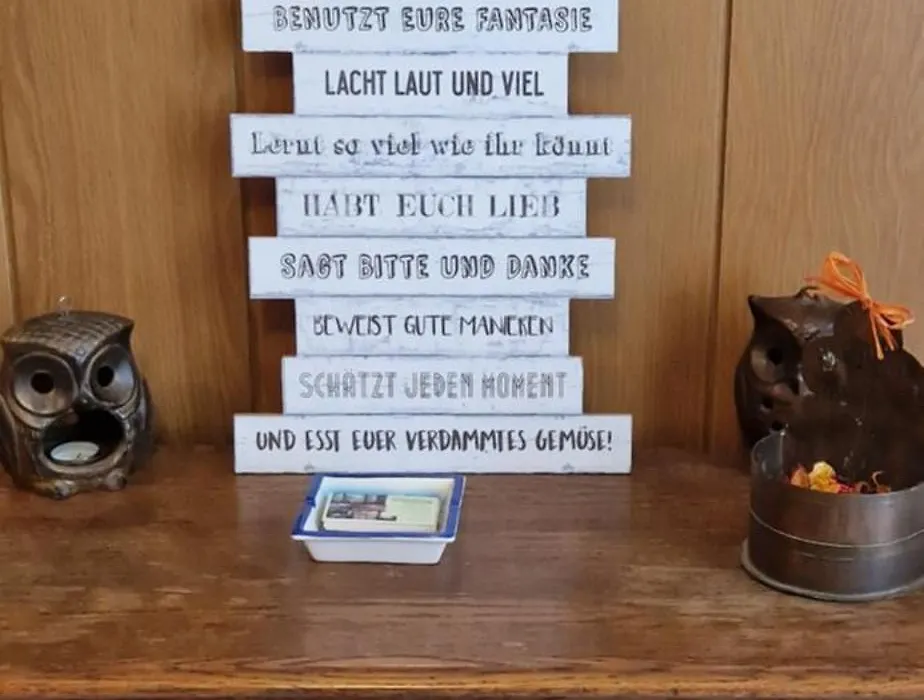 BENUTZT EURE FANTASIE
LACHT LAUT UND VIEL
Lernt so viel wie ihr könnt
HABT EUCH LIEB
SAGT BITTE UND DANKE
BEWEIST GUTE MANIEREN
SCHÄTZT JEDEN MOMENT
UND ESST EUER VERDAMMTES GEMÜSE!